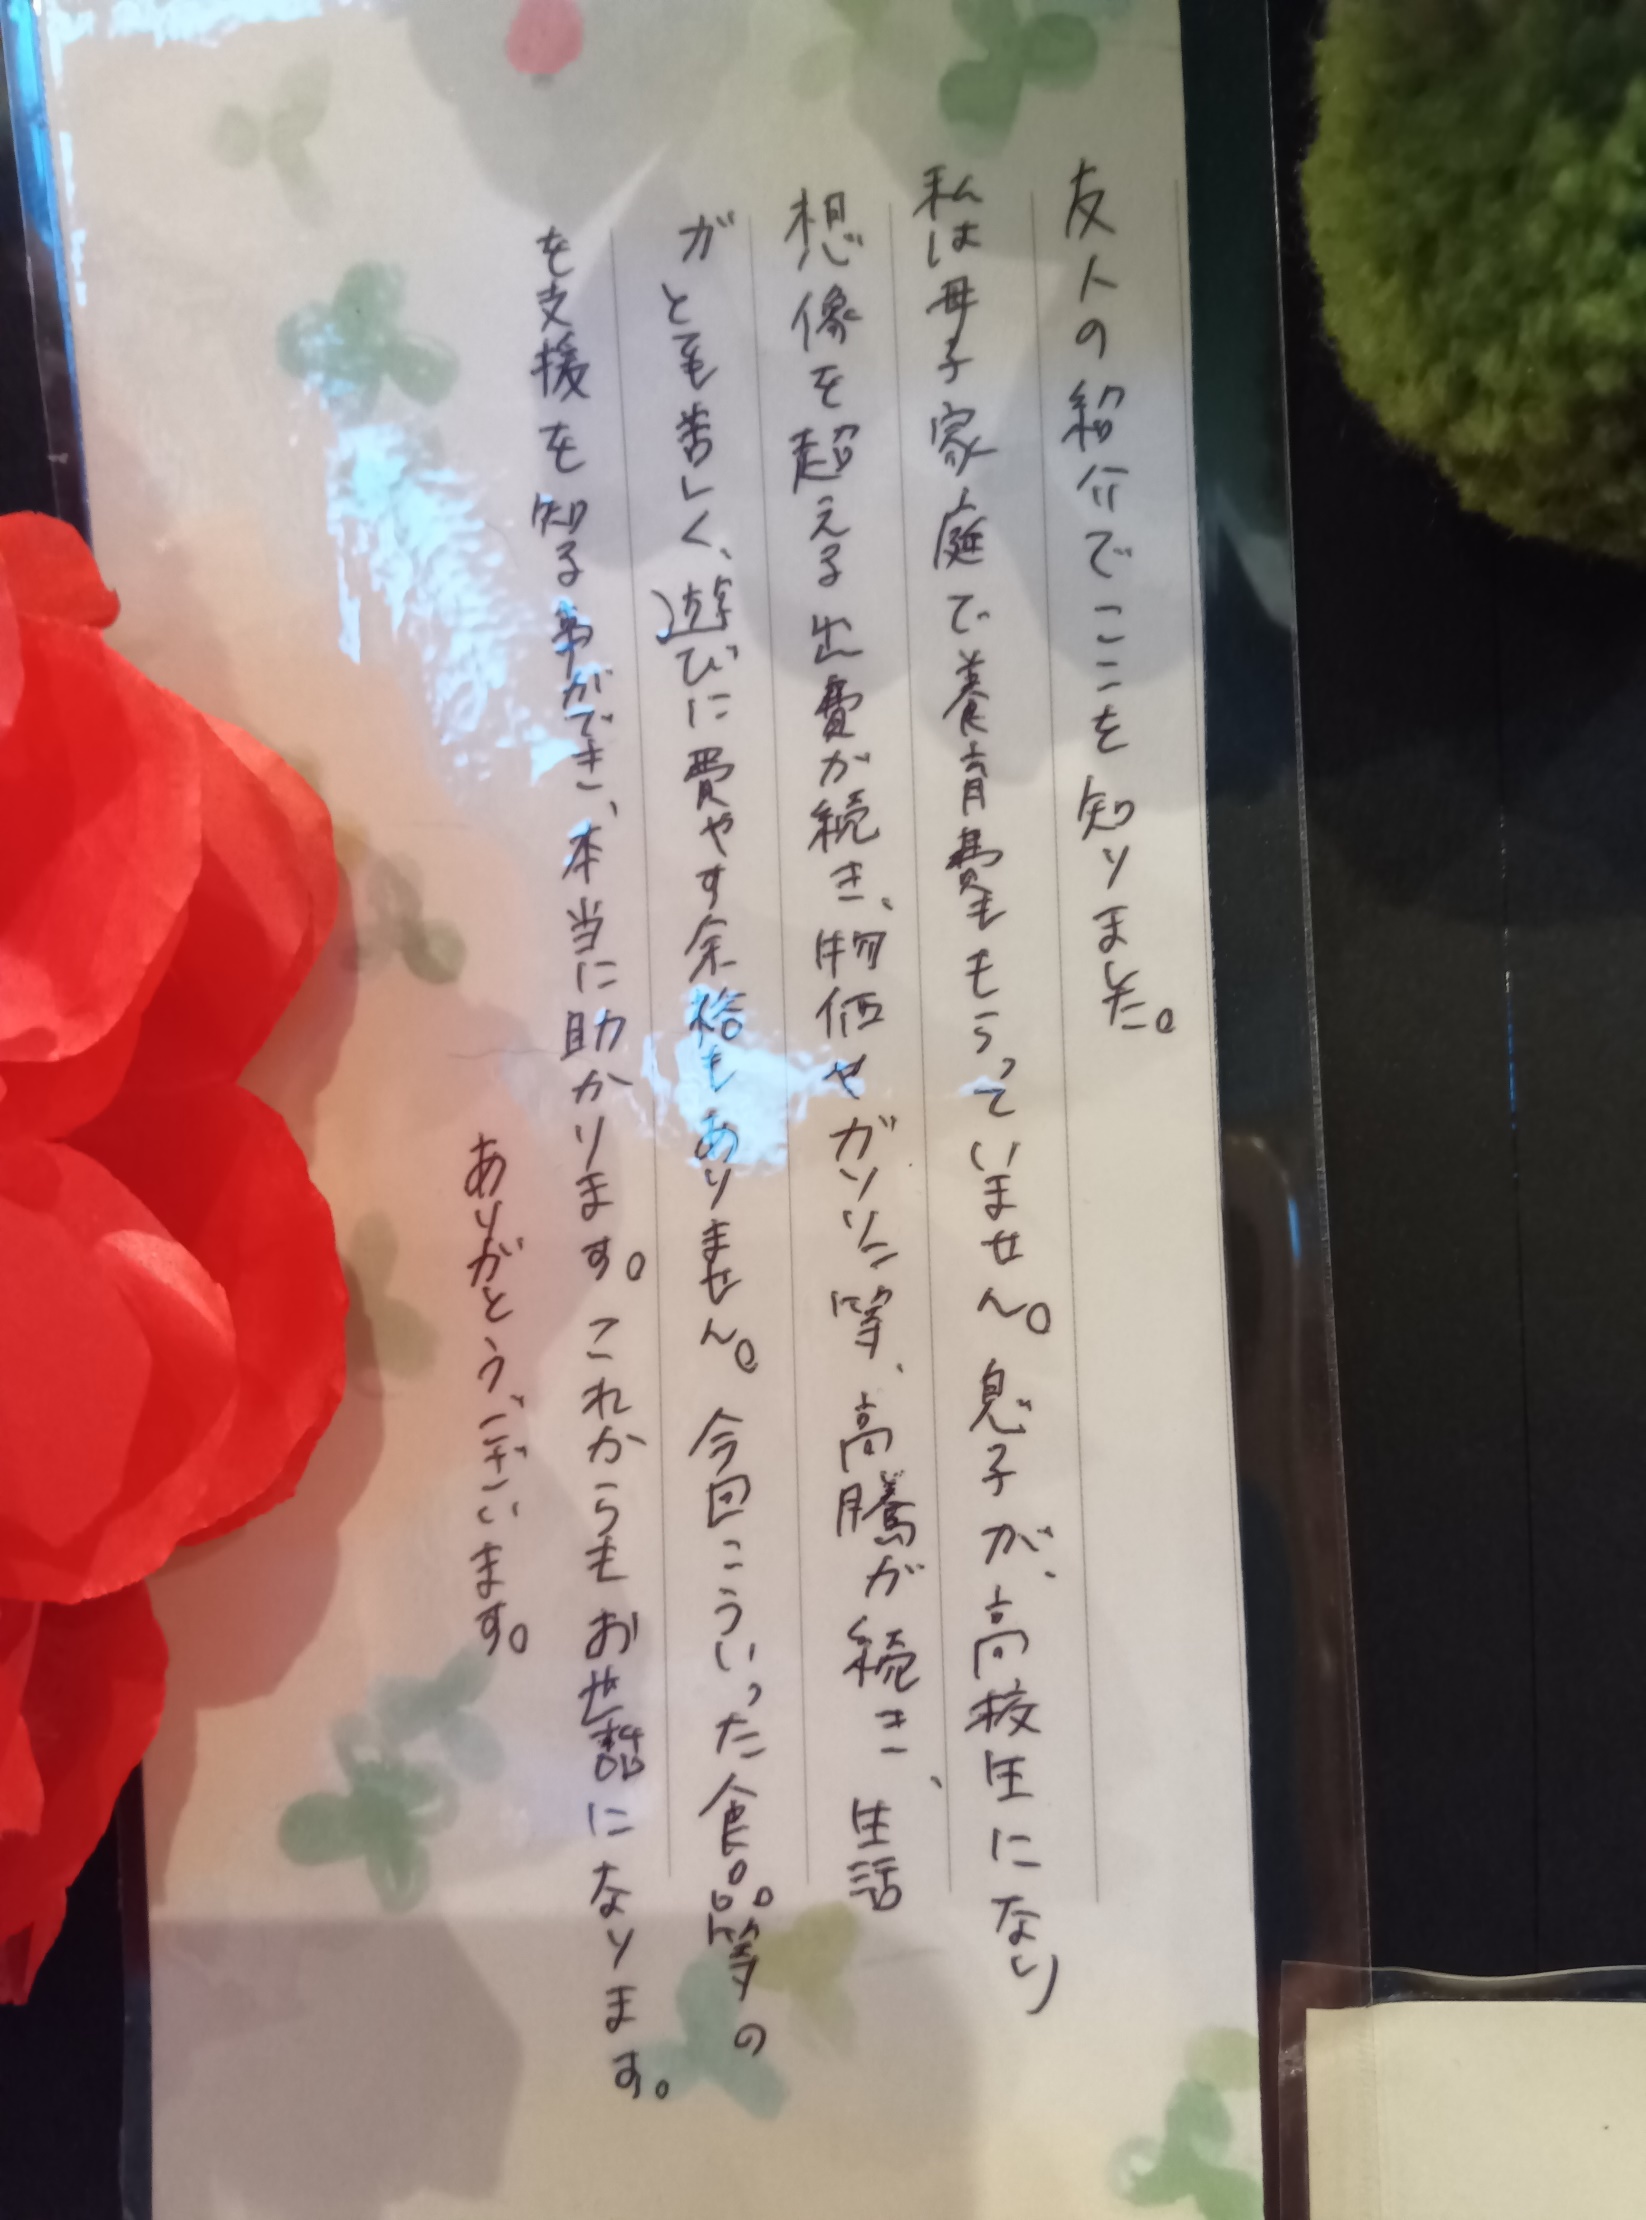 友人の紹介でここを知りました。
私は母子家庭で養育費ももらっていません。息子が、高校生になり
想像を超える出費が続き、物価やガソリン等、高騰が続き、生活
がとても苦しく、遊びに費やす余裕もありません。今回こういった食品等の
を支援を知る事ができ、本当に助かります。これからもお世話になります。
ありがとうございます。